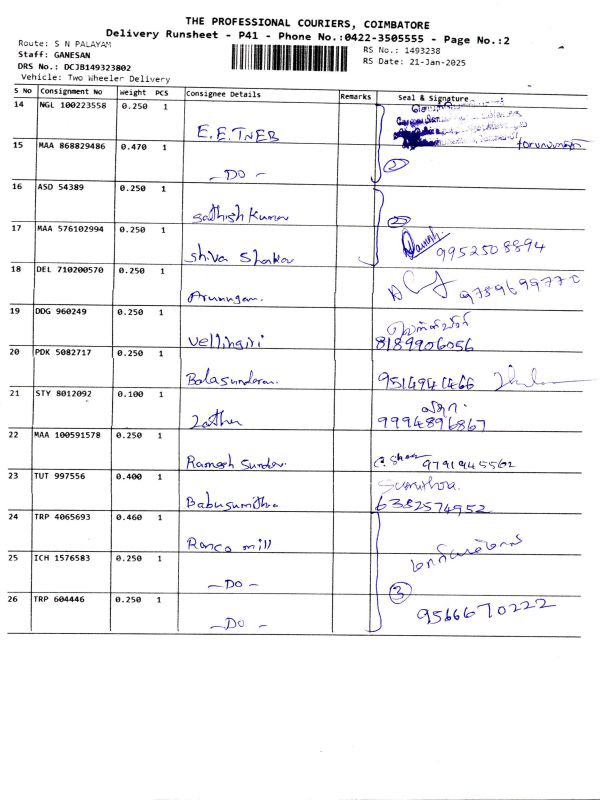 THE PROFESSIONAL COURIERS, COIMBATORE
Delivery Runsheet - P41 - Phone No.:0422-3505555 - Page No.:2
Route: S N PALAYAM
RS No.: 1493238
Staff: GANESAN
RS Date: 21-Jan-2025
DRS No.: DCJB149323802
Vehicle: Two Wheeler Delivery
S No Consignment No Weight PCS Consignee Details Remarks Seal & Signature
14 NGL 100223558 0.250 1 E.E.TNEB
15 MAA 868829486 0.470 1 -DO- 2
16 ASD 54389 0.250 1 Sathish Kumar 2
17 MAA 576102994 0.250 1 Shiva 9952508894
18 DEL 710200570 0.250 1 Arumugam. 9789699770
19 DDG 960249 0.250 1 Vellingiri 8189906056
20 PDK 5082717 0.250 1 Balasundaram 9514941466
21 STY 8012092 0.100 1 Latha 9994896867
22 MAA 100591578 0.250 1 Ramesh Sundar. 9791945562
23 TUT 997556 0.400 1 Babusumithra Sumithra. 6382574952
24 TRP 4065693 0.460 1 Ranco mill
25 ICH 1576583 0.250 1 -DO- 3
26 TRP 604446 0.250 1 -DO- 9566670222